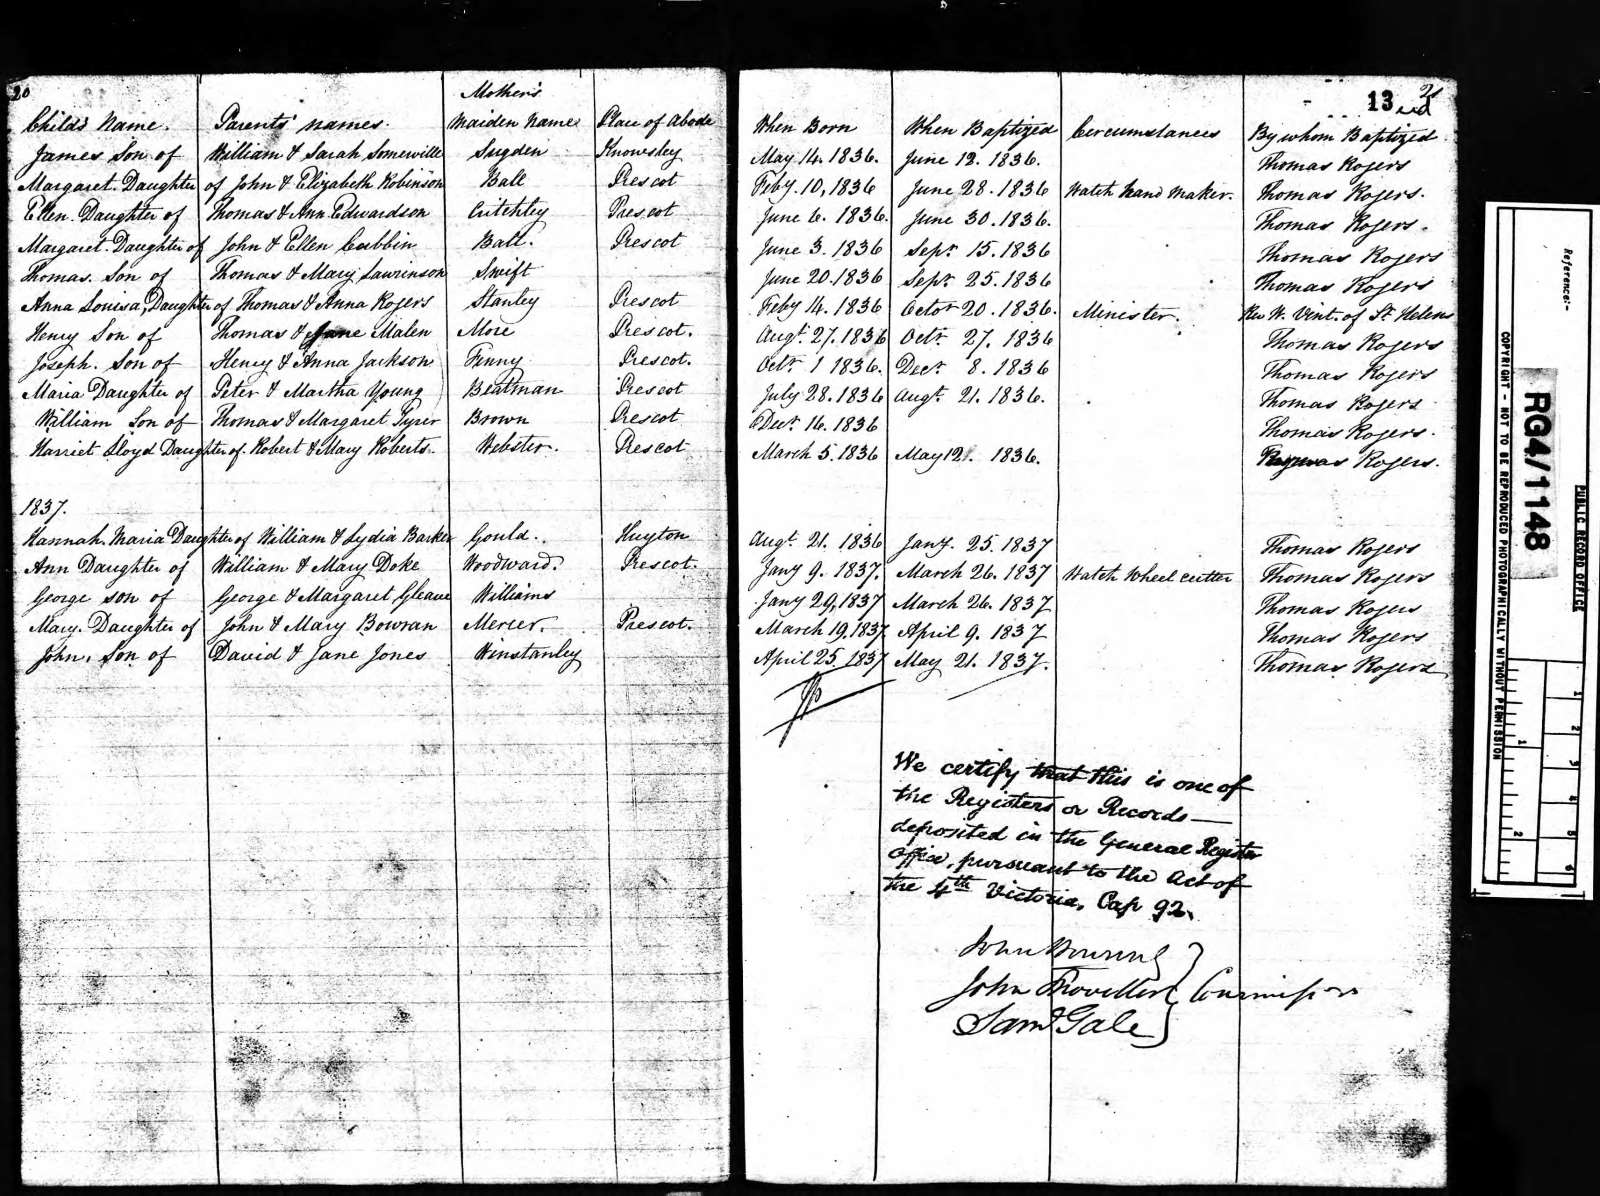 20
Mother's
Child's Name. Parents' names. Maiden Name Place of Abode
James Son of William & Sarah Somerville Sugden Knowsley
Margaret. Daughter of John & Elizabeth Robinson Ball Prescot
Ellen. Daughter of Thomas & Ann Edwardson Critchley Prescot
Margaret. Daughter of John & Ellen Cubbin Ball. Prescot
Thomas. Son of Thomas & Mary Lawrinson Swift
Anna Louisa, Daughter of Thomas & Anna Rogers Stanley Prescot
Henry Son of Thomas & Jane Malen More Prescot.
Joseph. Son of Henry & Anna Jackson Finny Prescot.
Maria Daughter of Peter & Martha Young Beatman Prescot
William Son of Thomas & Margaret Tyrer Brown Prescot
Harriet Lloyd Daughter of Robert & Mary Roberts. Webster. Prescot
1837.
Hannah. Maria Daughter of William & Lydia Barker Gould. Huyton
Ann Daughter of William & Mary Doke Woodward. Prescot.
George Son of George & Margaret Gleave Williams
Mary. Daughter of John & Mary Bowran Mercer. Prescot.
John. Son of David & Jane Jones Winstanley
13 21
When Born When Baptized Circumstances By whom Baptized
May 14. 1836. June 12. 1836. Thomas Rogers
Feby. 10, 1836 June 28. 1836 Watch hand maker. Thomas Rogers.
June 6. 1836. June 30. 1836. Thomas Rogers.
June 3. 1836 Sepr. 15. 1836 Thomas Rogers
June 20. 1836 Sepr. 25. 1836 Thomas Rogers
Feby 14. 1836 Octor 20. 1836. Minister. Rev W. Vint. of St Helens
Augt. 27. 1836 Octr. 27. 1836 Thomas Rogers
Octr. 1 1836. Decr. 8. 1836 Thomas Rogers
July 28. 1836 Augt. 21. 1836. Thomas Rogers
Decr. 16. 1836 Thomas Rogers.
March 5. 1836 May 12. 1836. Rogers.
Augt. 21. 1836 Jany. 25. 1837 Thomas Rogers
Jany 9. 1837. March 26. 1837 Watch Wheel cutter Thomas Rogers
Jany 29, 1837 March 26. 1837 Thomas Rogers
March 19. 1837. April 9. 1837 Thomas Rogers
April 25. 1837 May 21. 1837. Thomas Rogers
We certify that this is one of
the Registers or Records
deposited in the General Register
Office, pursuant to the Act of
the 4th Victoria, Cap 92.
John Bowring
John Shoveller
Saml Gale
Reference:-
RG4/1148
PUBLIC RECORD OFFICE
COPYRIGHT - NOT TO BE REPRODUCED PHOTOGRAPHICALLY WITHOUT PERMISSION
1 2 3 4 5 6
1 2